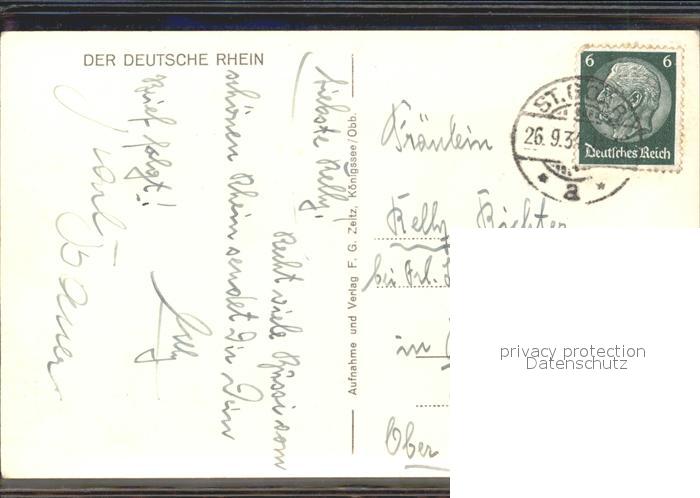 DER DEUTSCHE RHEIN
Liebste Kelly!
Recht viele Grüsse vom
schönen Rhein sendet Dir Dein
Willy
Brief folgt!!
Bauer
Aufnahme und Verlag F. G. Zeitz, Königssee/Obb.
6 6
Deutsches Reich
ST. GOAR
26. 9. 3
* a *
Fräulein
Kelly Richter
bei Frl.
in
Ober
privacy protection
Datenschutz